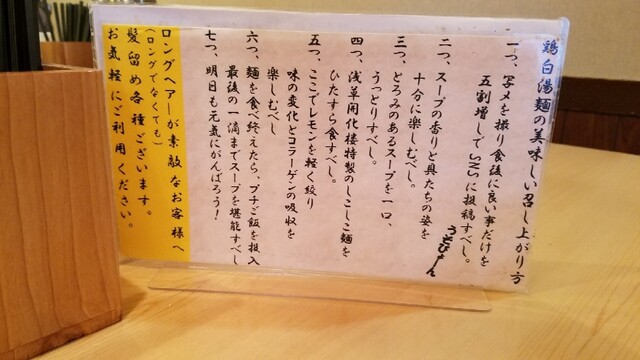 鶏白湯麺の美味しい召し上がり方
一つ、写メを撮り食後に良い事だけを
五割増しでSNSに投稿すべし。
二つ、スープの香りと具たちの姿を
十分に楽しむべし。
三つ、とろみのあるスープを一口、
うっとりすべし。
四つ、浅草開化楼特製のしこしこ麺を
ひたすら食すべし。
五つ、ここでレモンを軽く絞り
味の変化とコラーゲンの吸収を
楽しむべし
六つ、麺を食べ終えたら、プチご飯を投入
最後の一滴までスープを堪能すべし
七つ、明日も元気にがんばろう！
ロングヘアーが素敵なお客様へ
（ロングでなくても）
髪留め各種ございます。
お気軽にご利用ください。